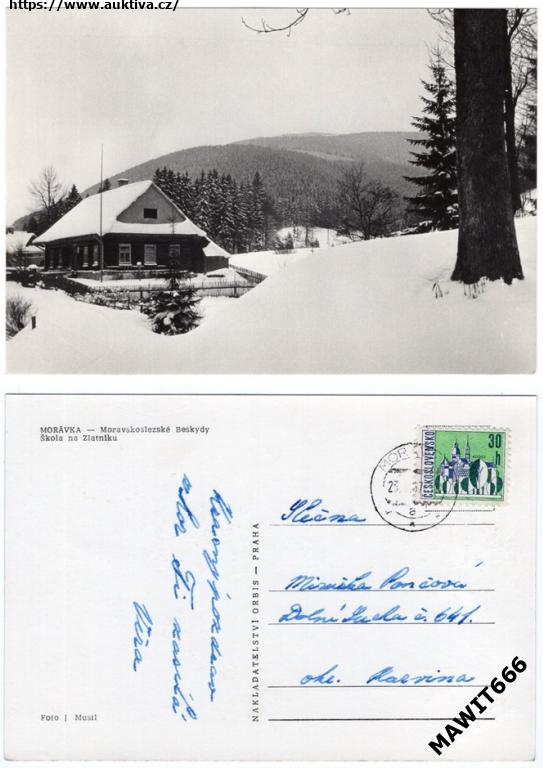 https://www.auktiva.cz/
MORÁVKA — Moravskoslezské Beskydy
Škola na Zlatníku
ČESKOSLOVENSKO
30
h
MOR
23.
a
Krásný pozdrav
Ti zasílá
Věra
NAKLADATELSTVÍ ORBIS — PRAHA
Slečna
Miruška
Dolní Suchá č. 641.
okr. Karvina
Foto J Musil
MAWIT666